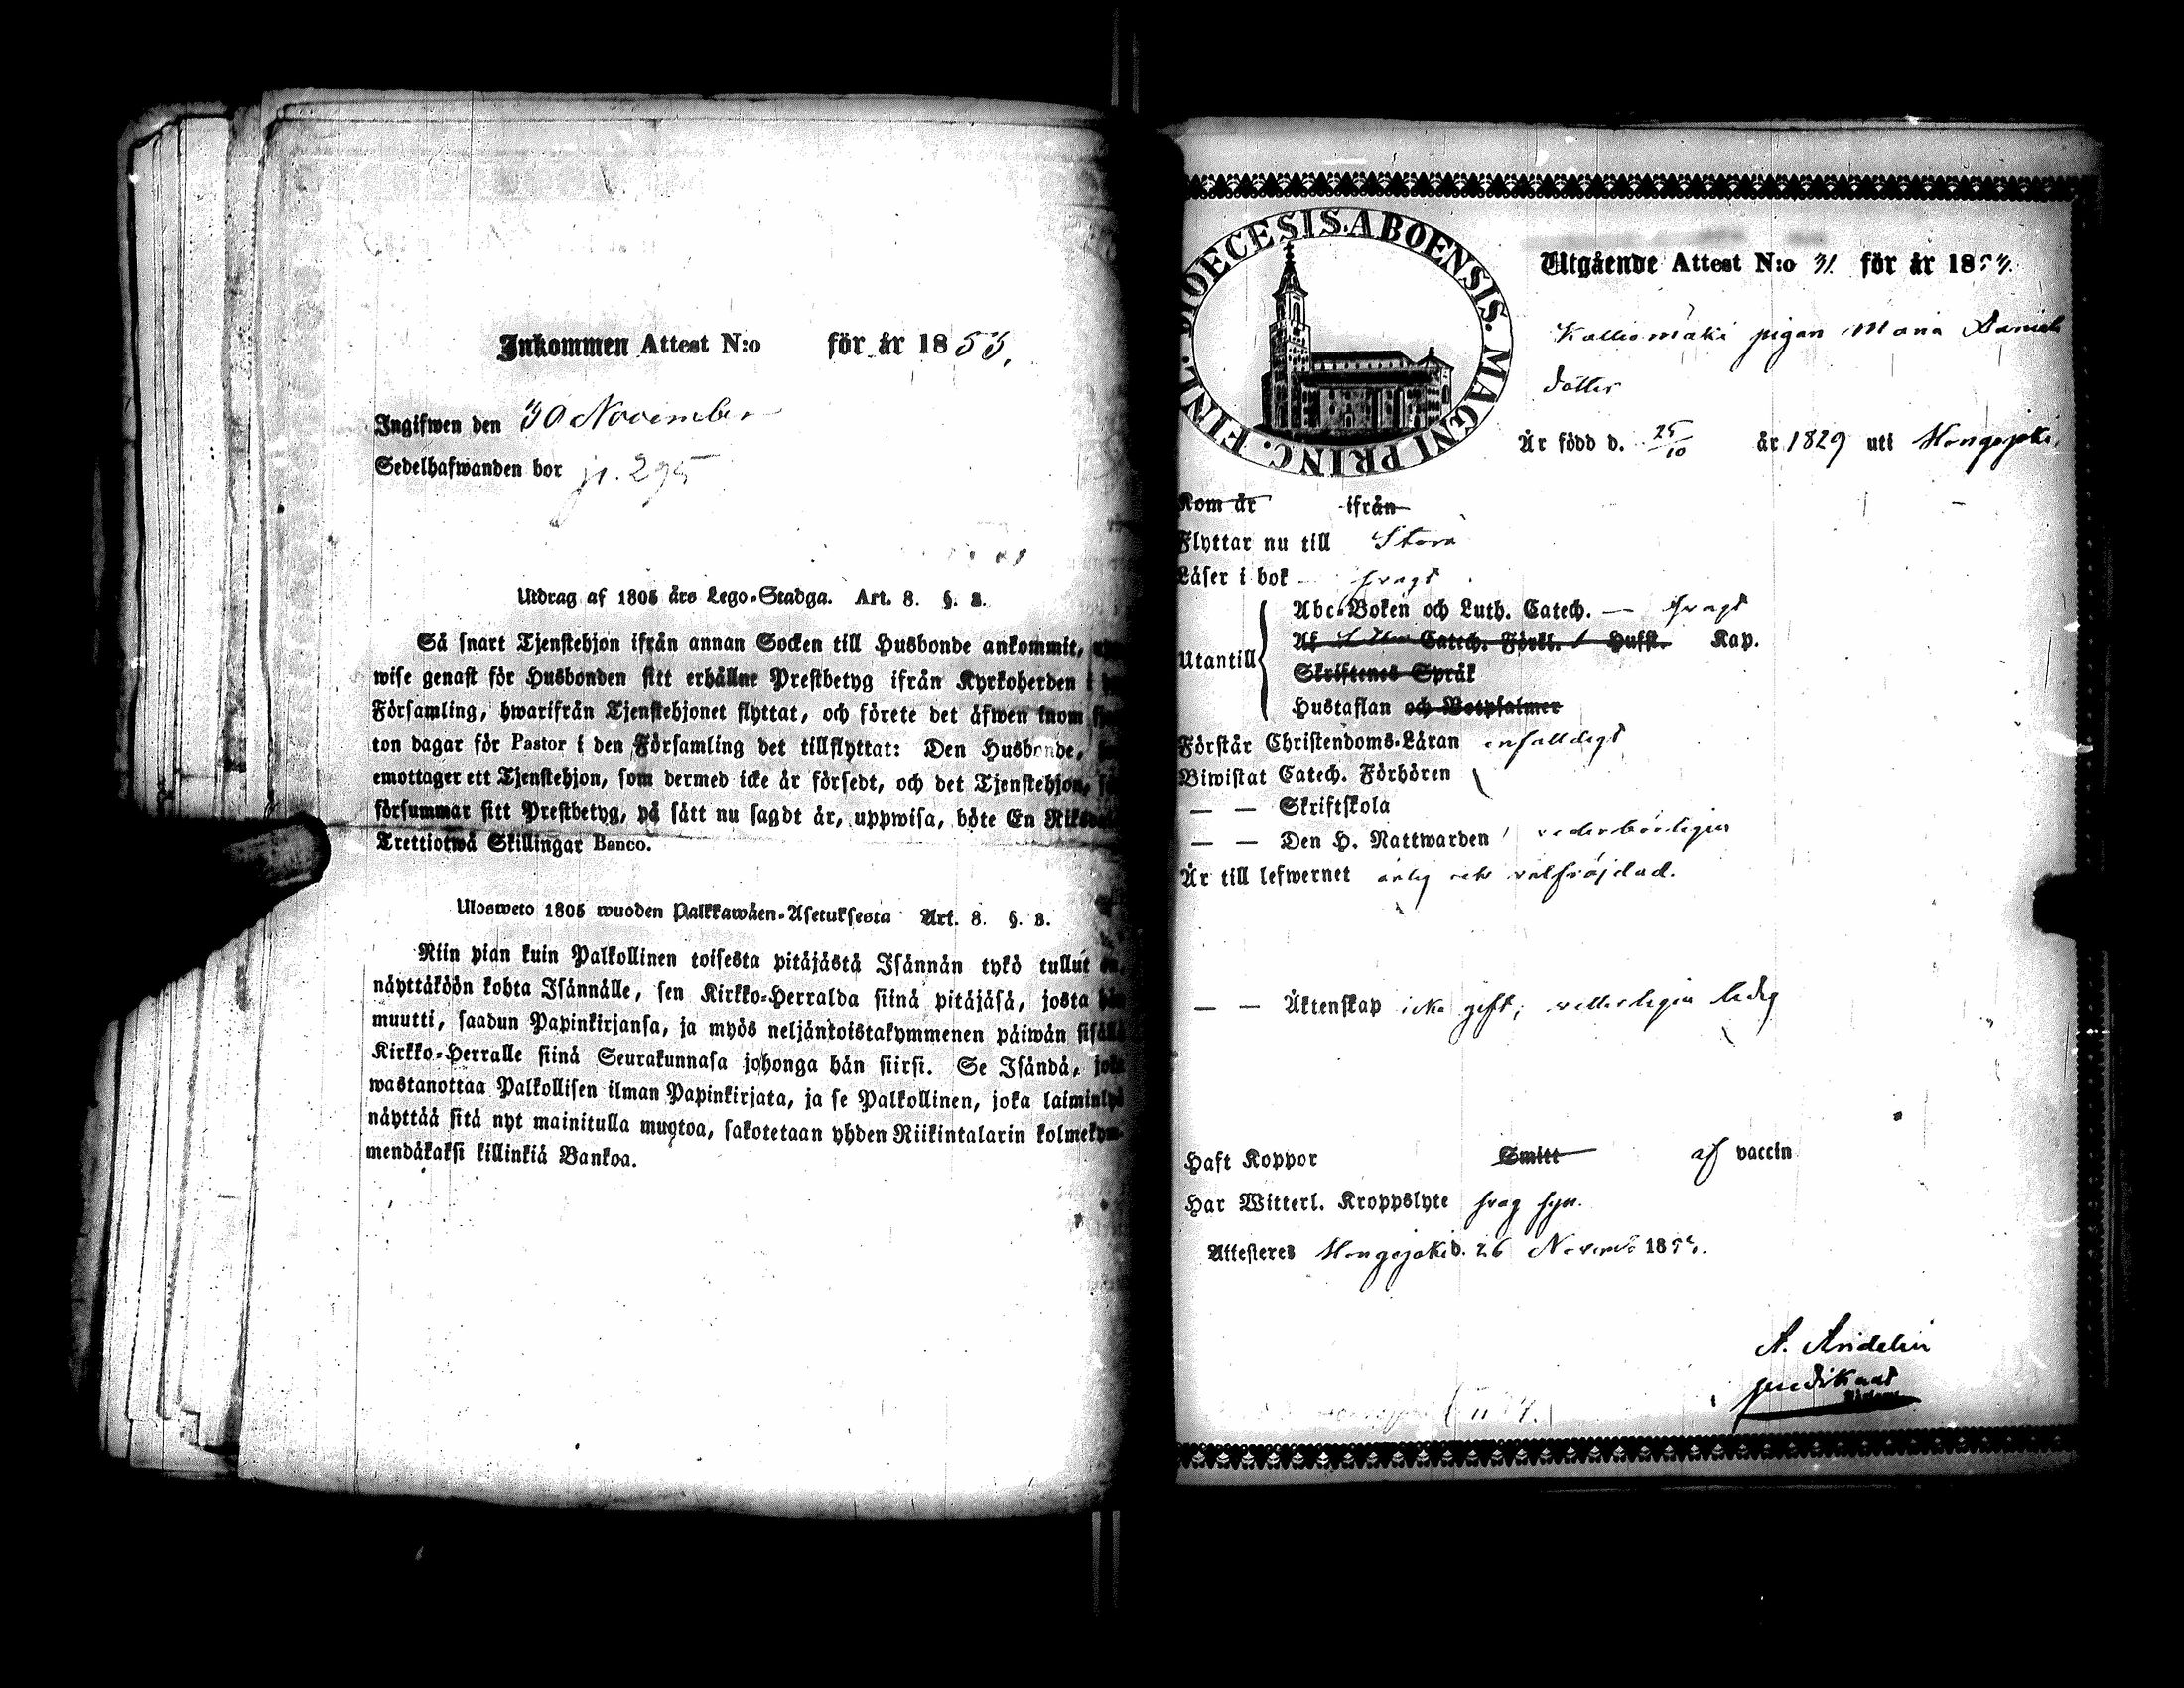 Inkommen Attest N:o för år 1853.
Ingifwen den 30 November
Sedelhafwanden bor p. 295
Utdrag af 1805 års Lego-Stadga. Art. 8. §. 2.
Så snart Tjenstehjon ifrån annan Socken till Husbonde ankommit,
wise genast för Husbonden sitt erhållne Prestbetyg ifrån Kyrkoherden i
Församling, hwarifrån Tjenstehjonet flyttat, och förete det äfwen inom
ton dagar för Pastor i den Församling det tillflyttat: Den Husbonde,
emottager ett Tjenstehjon, som dermed icke är försedt, och det Tjenstehjon,
försummar sitt Prestbetyg, på sätt nu sagdt är, uppwisa, böte En
Trettiotwå Skillingar Banco.
Ulosweto 1805 wuoden Palkkawäen-Asetuksesta Art. 8. §. 2.
Niin pian kuin Palkollinen toisesta pitäjästä Isännän tykö tullut on,
näyttäköön kohta Isännälle, sen Kirkko-Herralda siinä pitäjäsä, josta hän
muutti, saadun Papinkirjansa, ja myös neljäntoistakymmenen päiwän sisällä
Kirkko-Herralle siinä Seurakunnasa johonga hän siirsi. Se Isändä, joka
wastanottaa Palkollisen ilman Papinkirjata, ja se Palkollinen, joka laiminlyö
näyttää sitä nyt mainitulla muotoa, sakotetaan yhden Riikintalarin kolmekym-
mendäkaksi killinkiä Bankoa.
FINL. DIOECESIS. ABOENSIS. MAGNI PRINC.
Utgående Attest N:o 31 för år 1853.
Kalliomäki pigan Maria Daniels
dotter
Är född d. 25/10 år 1829 uti Hongojoki.
Kom år ifrån
Flyttar nu till Storå
Läser i bok svagt
Abc-Boken och Luth. Catech. — svagt
Utantill
Catech. Förkl. Hufst. Kap.
Skriftenes Språk
Hustaflan och Botpsalmer
Förstår Christendoms-Läran enfalldigt
Biwistat Catech. Förhören
— — Skriftskola
— — Den H. Nattwarden vederbörligen
Är till lefwernet ärlig och välfräjdad.
— — Äktenskap icke gift; veterligen ledig
Haft Koppor Smitt af vaccin
Har Witterl. Kroppslyte svag syn.
Attesteres Hongojoki d. 26 Novemb 1853.
A. Andelin